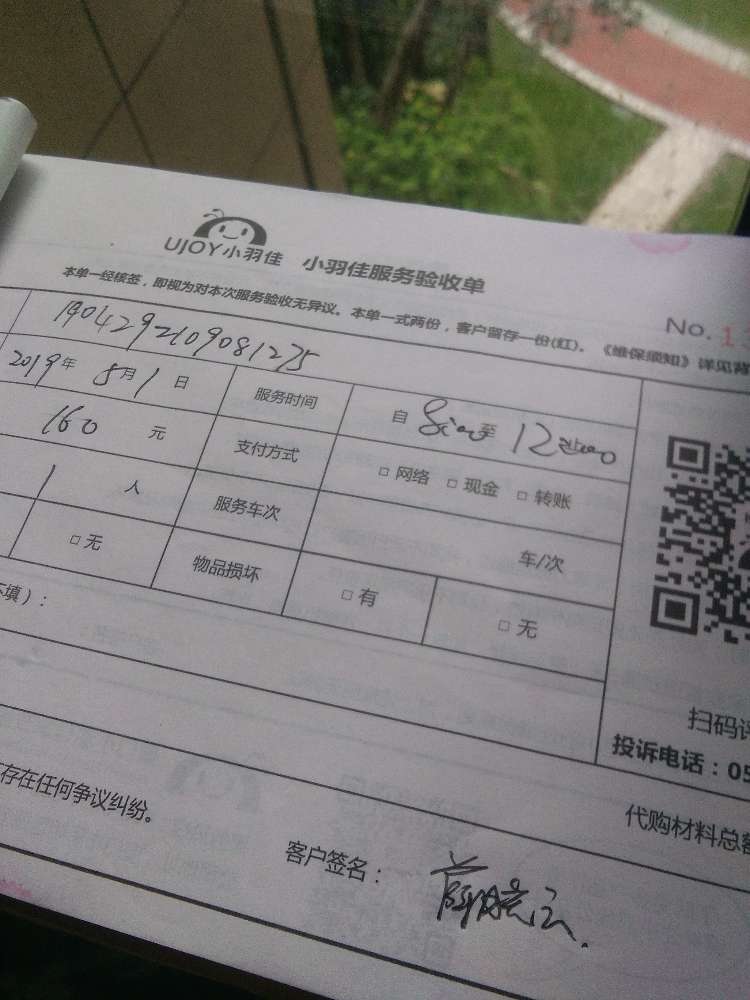 UJOY小羽佳 小羽佳服务验收单
本单一经核签，即视为对本次服务验收无异议。本单一式两份，客户留存一份(红)。《维保须知》详见背
No. 13
1904292109081275
2019年 5月1日 服务时间 自 8:00 至 12:00
160 元 支付方式 □ 网络 □ 现金 □ 转账
1 人 服务车次 车/次
□ 无 物品损坏 □ 有 □ 无
填）：
扫码评
投诉电话：05
存在任何争议纠纷。
代购材料总额
客户签名：